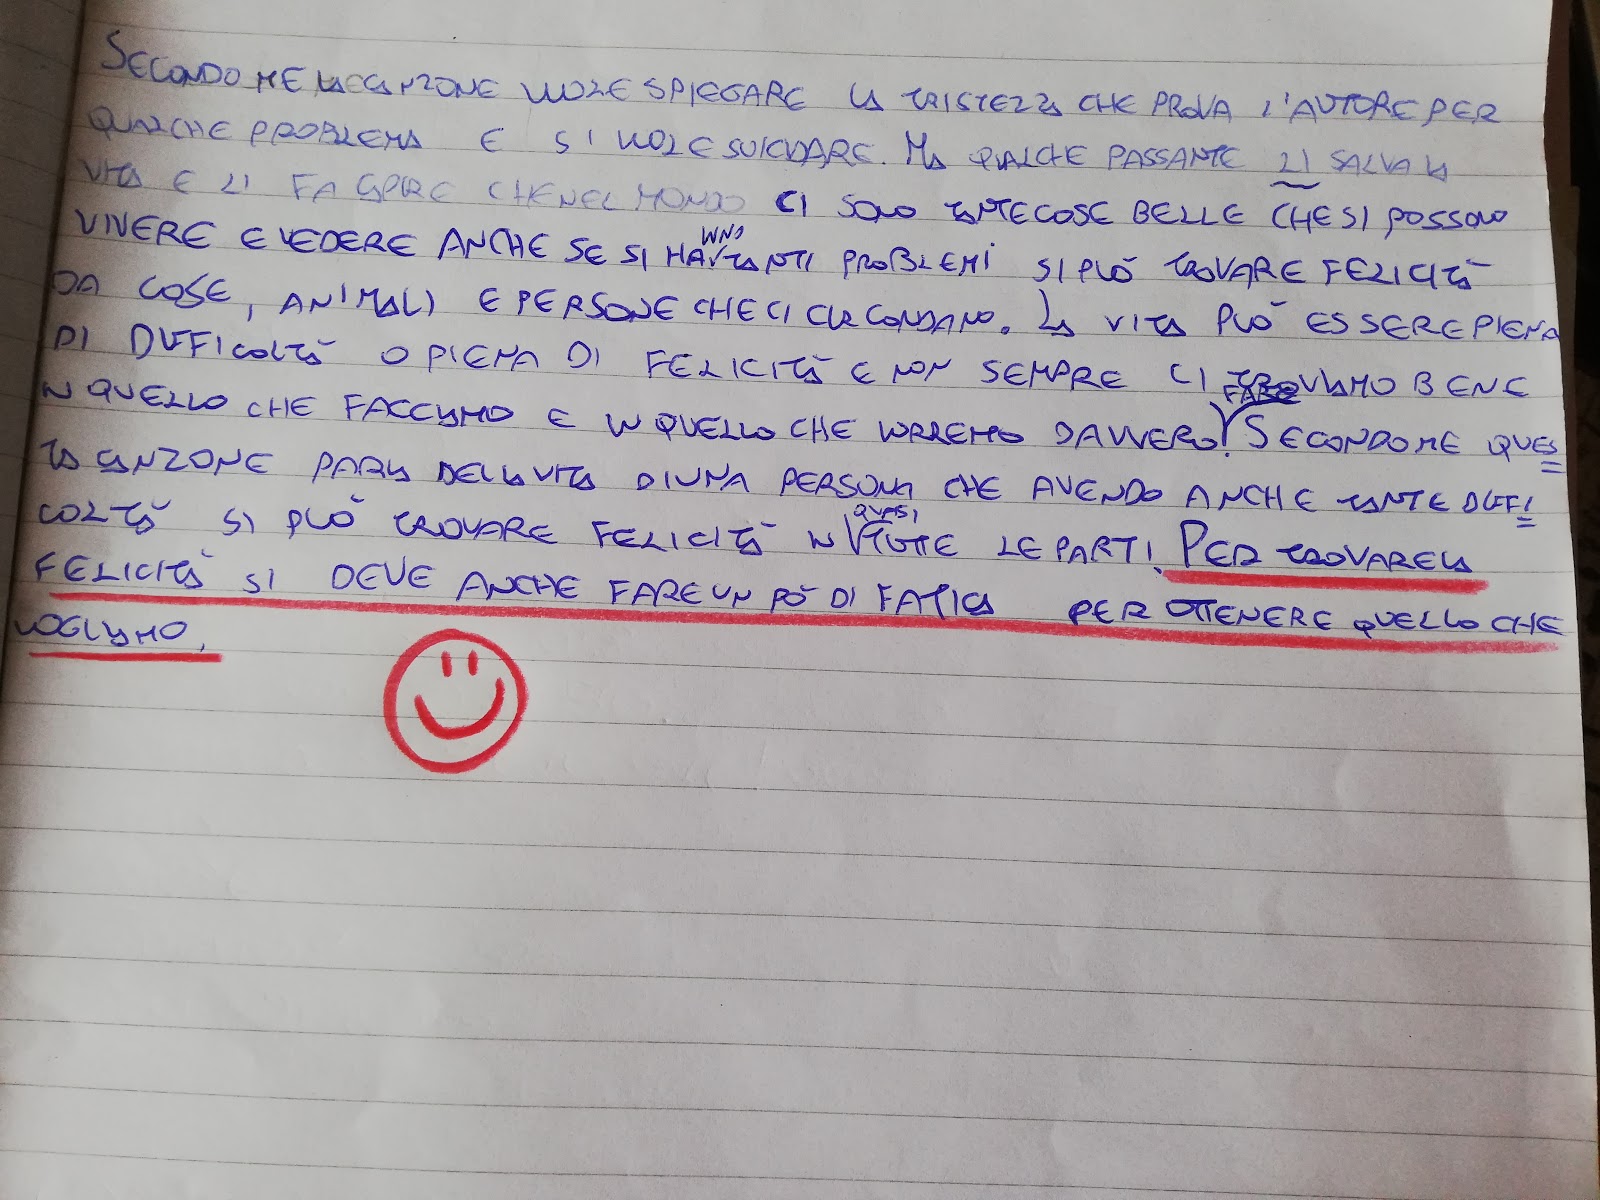 SECONDO ME LA CANZONE VUOLE SPIEGARE LA TRISTEZZA CHE PROVA L'AUTORE PER
QUALCHE PROBLEMA E SI VUOLE SUICIDARE. MA QUALCHE PASSANTE LI SALVA LA
VITA E LI FA CAPIRE CHE NEL MONDO CI SONO TANTE COSE BELLE CHE SI POSSONO
VIVERE E VEDERE ANCHE SE SI HANNO TANTI PROBLEMI SI PUÒ TROVARE FELICITÀ
DA COSE, ANIMALI E PERSONE CHE CI CIRCONDANO. LA VITA PUÒ ESSERE PIENA
DI DIFFICOLTÀ O PIENA DI FELICITÀ E NON SEMPRE CI TROVIAMO BENE
IN QUELLO CHE FACCIAMO E IN QUELLO CHE VORREMO DAVVERO FARE. SECONDO ME QUES
TA CANZONE PARLA DELLA VITA DI UNA PERSONA CHE AVENDO ANCHE TANTE DIFFI
COLTÀ SI PUÒ TROVARE FELICITÀ IN QUASI TUTTE LE PARTI. PER TROVARE LA
FELICITÀ SI DEVE ANCHE FARE UN PÒ DI FATICA PER OTTENERE QUELLO CHE
VOGLIAMO.